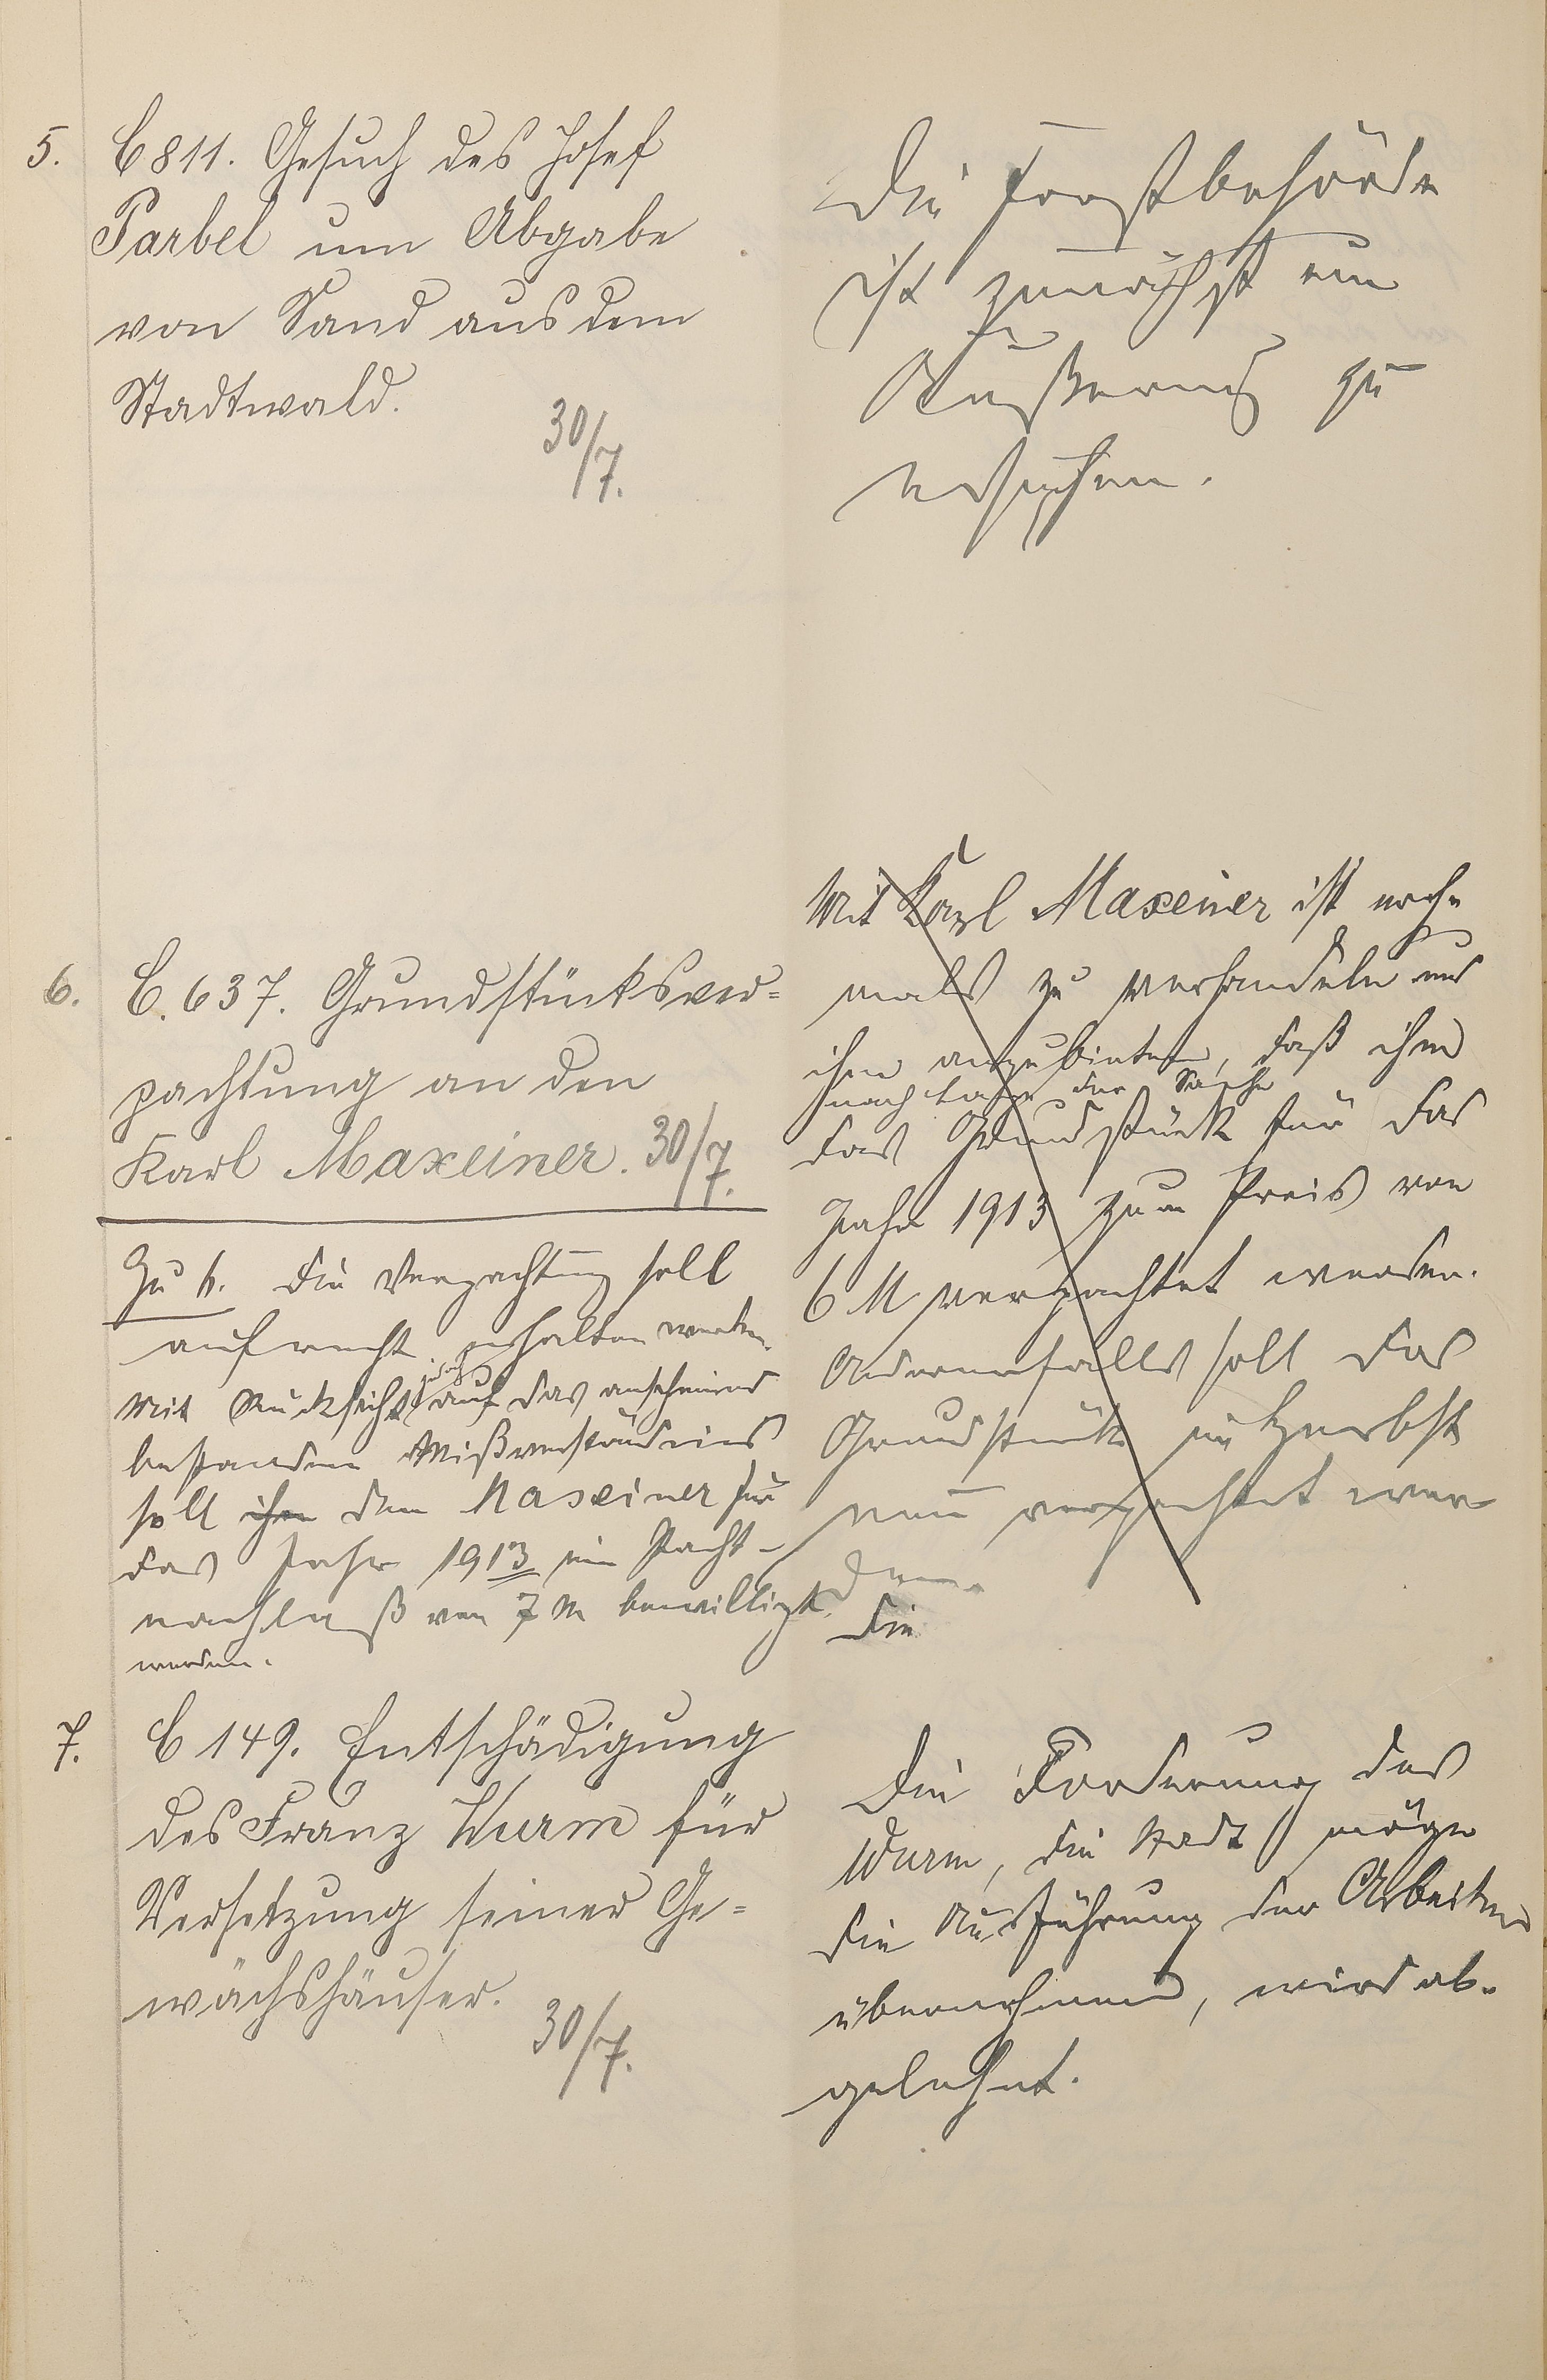 5. C 811. Gesuch des Josef
Parbel um Abgabe
von Sand aus dem
Stadtwald.
30/7.
Die Forstbehörde
ist zunächst um
Äußerung zu
ersuchen.
6. C. 637. Grundstücksver-
pachtung an den
Karl Maxeiner. 30/7.
Zu 6. Die Verpachtung soll
aufrecht erhalten werden.
Mit Rücksicht jedoch auf das anscheinend
bestandene Mißverständnis
soll ihm dem Maxeiner für
das Jahr 1913 ein Pacht-
nachlaß von 7 M bewilligt
werden.
Mit Karl Maxeiner ist noch-
mals zu verhandeln und
ihm anzubieten, daß ihm
nach Lage der Sache
das Grundstück für das
Jahr 1913 zum Preis von
6 M verpachtet werden.
Anderenfalls soll das
Grundstück im Herbst
neu verpachtet wer-
den.
Die
7. C 149. Entschädigung
des Franz Wurm für
Versetzung seiner Ge-
wächshäuser.
30/7.
Die Forderung des
Wurm, die Stadt möge
die Ausführung der Arbeiten
übernehmen, wird ab-
gelehnt.